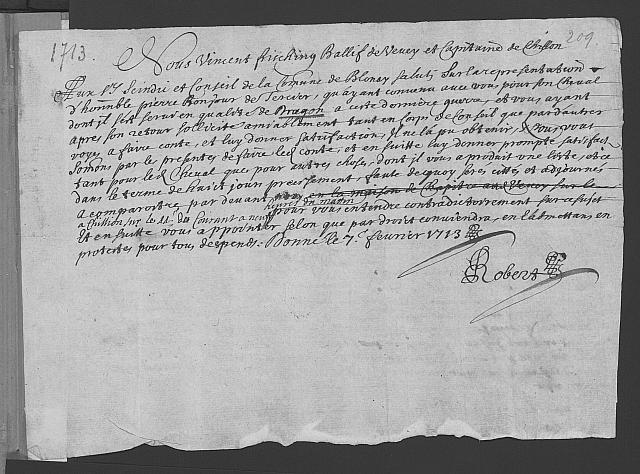 1713.
209.
Nous Vincent Frisching Ballif de Vevey et Capitaine de Chillon
Aux Srs Scindic et Conseil de la Comune de Blonay salut; Sur la representation
d'honnble pierre Bonjour de Tercier, qu'ayant convenu avec vous pour son Cheval
dont il s'est servi en qualité de Dragon a cette derniere guerre, et vous ayant
apres son retour sollicité amiablement tant en Corps de Conseil que par d'autres
voyes a faire conte, et luy donner satisfaction, il ne l'a pu obtenir, Nous vous
somons par le presentes de faire led conte, et en suitte luy donner prompte satisfact.
tant pour led Cheval que pour autres choses, dont il vous a produit une liste, et ce
dans le terme de huict jours precisement, faute de quoy serés cittés et adjournés
a comparoitre par devant nous en la maison de Chapitre au Vevey sur le
a Chillion sur le 11. du Courant a neuf heures du matin pour vous entendre contradictoirement sur ce sujet
Et en suitte vous appointer selon que par droit conviendra, en l'admettans en
protestes pour tous despends. Donné le 7.e fevrier 1713
Robert